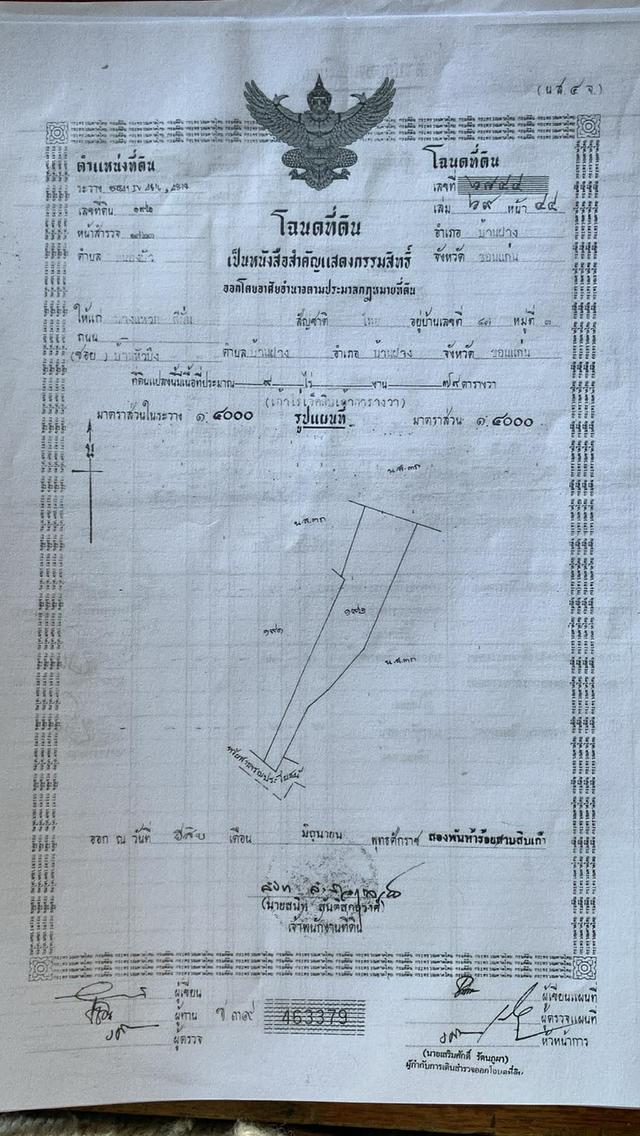 (น.ส.๔ จ.)
ตำแหน่งที่ดิน
ระวาง
เลขที่ดิน ๑๙๒
หน้าสำรวจ
ตำบล หนองบัว
โฉนดที่ดิน
เลขที่ ๒๗๔๔
เล่ม ๒๙ หน้า ๔๔
อำเภอ บ้านฝาง
จังหวัด ขอนแก่น
โฉนดที่ดิน
เป็นหนังสือสำคัญแสดงกรรมสิทธิ์
ออกโดยอาศัยอำนาจตามประมวลกฎหมายที่ดิน
ให้แก่ สัญชาติ ไทย อยู่บ้านเลขที่ ๔๗ หมู่ที่ ๓
ถนน
(ซอย) บ้านหัวบึง ตำบล บ้านฝาง อำเภอ บ้านฝาง จังหวัด ขอนแก่น
ที่ดินแปลงนี้มีเนื้อที่ประมาณ ๙ ไร่ - งาน ๗๙ ตารางวา
(เก้าไร่เจ็ดสิบเก้าตารางวา)
มาตราส่วนในระวาง ๑:๔๐๐๐ รูปแผนที่ มาตราส่วน ๑:๔๐๐๐
น
น.ส.๓ก
น.ส.๓ก
๑๙๒
๑๙๑
น.ส.๓ก
ห้วยสาธารณประโยชน์
ออก ณ วันที่ สิบ เดือน มิถุนายน พุทธศักราช สองพันห้าร้อยสามสิบเก้า
(นายสนิท สันติสุขวงศ์)
เจ้าพนักงานที่ดิน
ผู้เขียน
ผู้ทาน
ผู้ตรวจ
ข ๓๑๙ 463379
ผู้เขียนแผนที่
ผู้ตรวจแผนที่
หัวหน้าการ
(นายเสริมศักดิ์ รัตนภูผา)
ผู้กำกับการเดินสำรวจออกโฉนดที่ดิน